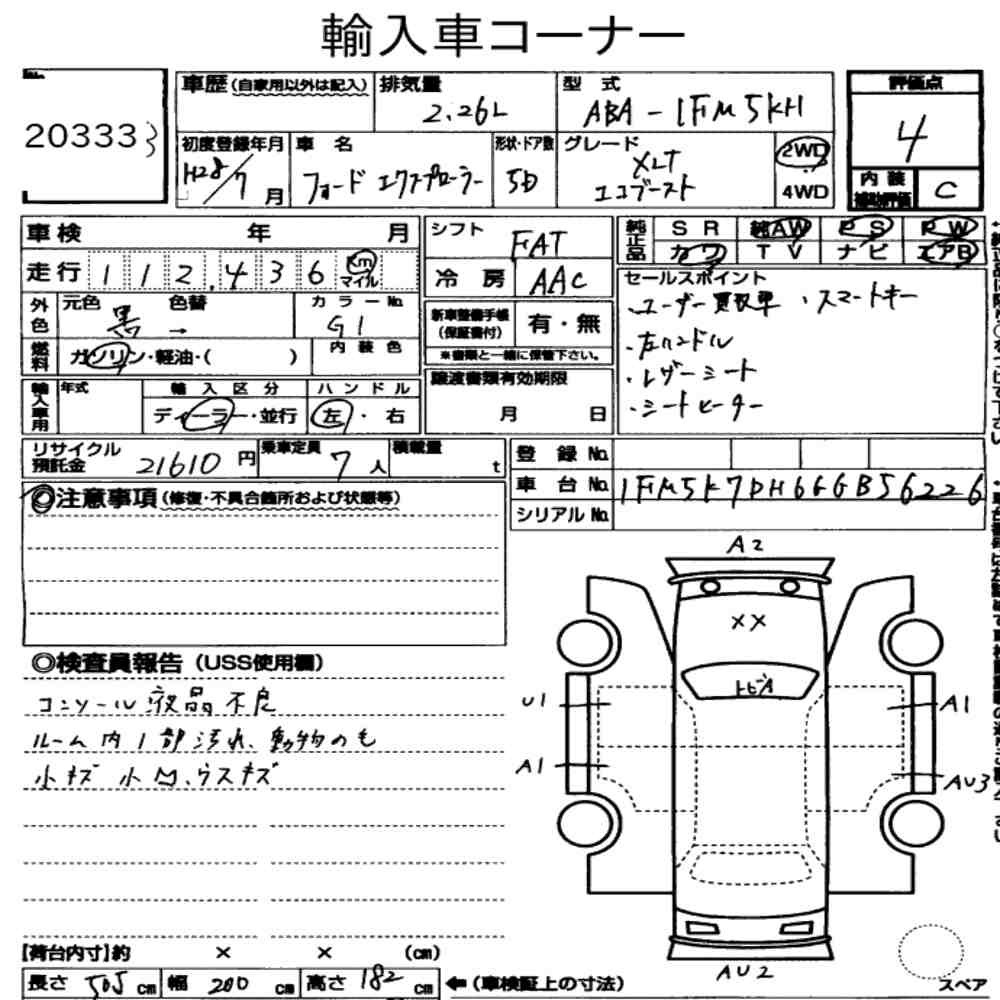 輸入車コーナー
No.
20333 3
車歴(自家用以外は記入) 排気量 型式
2.26L ABA-1FM5KH
評価点
4
内装補助評価 C
初度登録年月 車名 形状・ドア数 グレード
H28/7月 フォード エクスプローラー 5D XLT エコブースト 2WD 4WD
車検 年 月
シフト FAT
純正品 SR 純AW PS PW
カワ TV ナビ エアB
走行 112,436 km マイル
冷房 AAC
セールスポイント
・ユーザー買取車 ・スマートキー
・左ハンドル
・レザーシート
・シートヒーター
外色 元色 色替 カラーNo.
黒 → G1
新車整備手帳(保証書付) 有・無
※書類と一緒に保管下さい。
燃料 ガソリン・軽油・( ) 内装色
譲渡書類有効期限
月 日
輸入車用 年式 輸入区分 ハンドル
ディーラー・並行 左・右
リサイクル預託金 21610円 乗車定員 7人 積載量 t
登録No.
車台No. 1FM5K7DH6GGB56226
シリアルNo.
◎注意事項(修復・不具合箇所および状態等)
A2
XX
トビA
U1
A1
A1
AU3
AU2
スペア
◎検査員報告(USS使用欄)
コンソール液晶不良
ルーム内1部汚れ、動物のも
小キズ 小凹、ウスキズ
【荷台内寸】約 × × (cm)
長さ 505 cm 幅 200 cm 高さ 182 cm ←(車検証上の寸法)